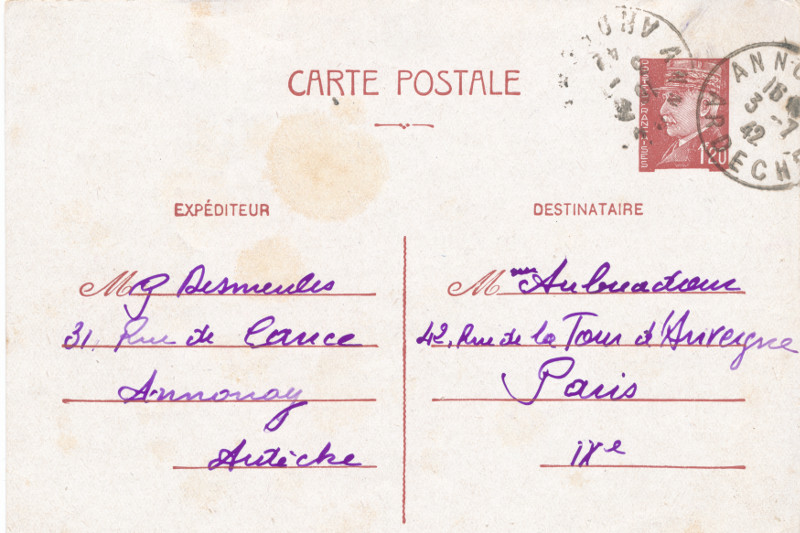 CARTE POSTALE
1,20
ANNO
16
3 -7
42
ARDECHE
EXPÉDITEUR
DESTINATAIRE
M g Desmeules
31, Rue de Cance
Annonay
Ardèche
Mme
42, Rue de la Tour d'Auvergne
Paris
IXe